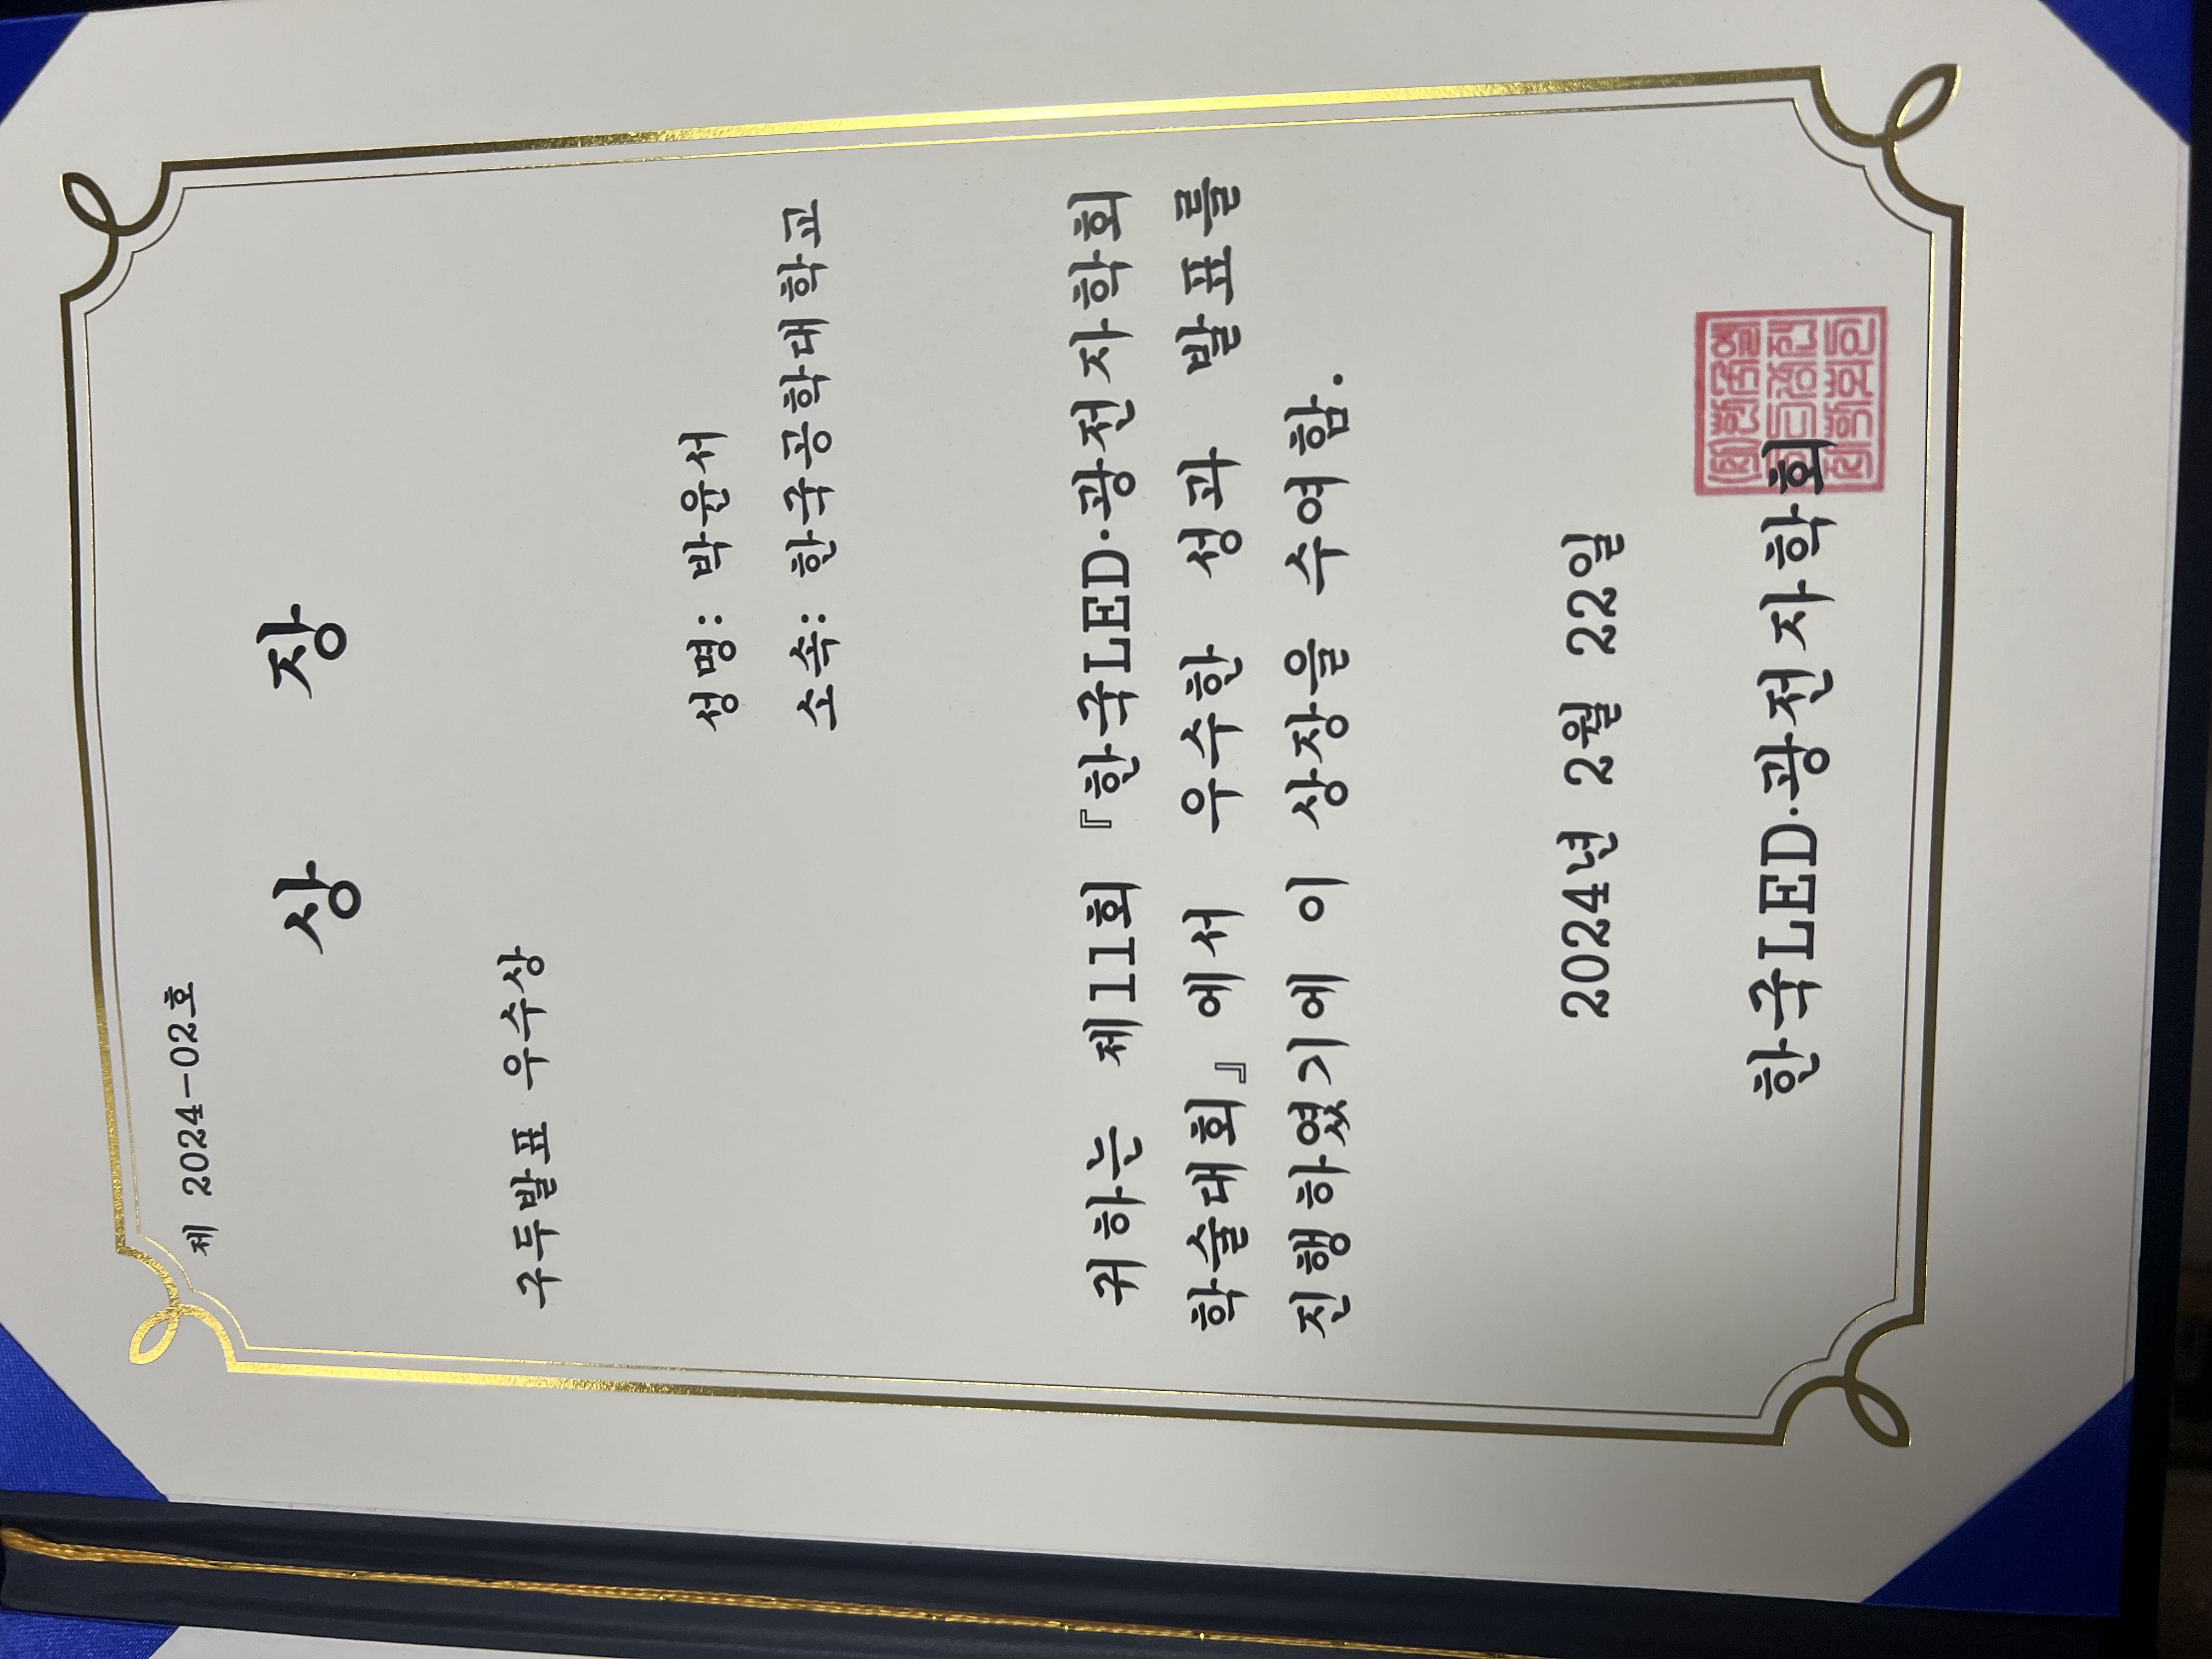 제 2024-02호
상 장
구두발표 우수상
성명: 박윤서
소속: 한국공학대학교
귀하는 제11회 『한국LED·광전자학회
학술대회』에서 우수한 성과 발표를
진행하였기에 이 상장을 수여함.
2024년 2월 22일
한국LED·광전자학회